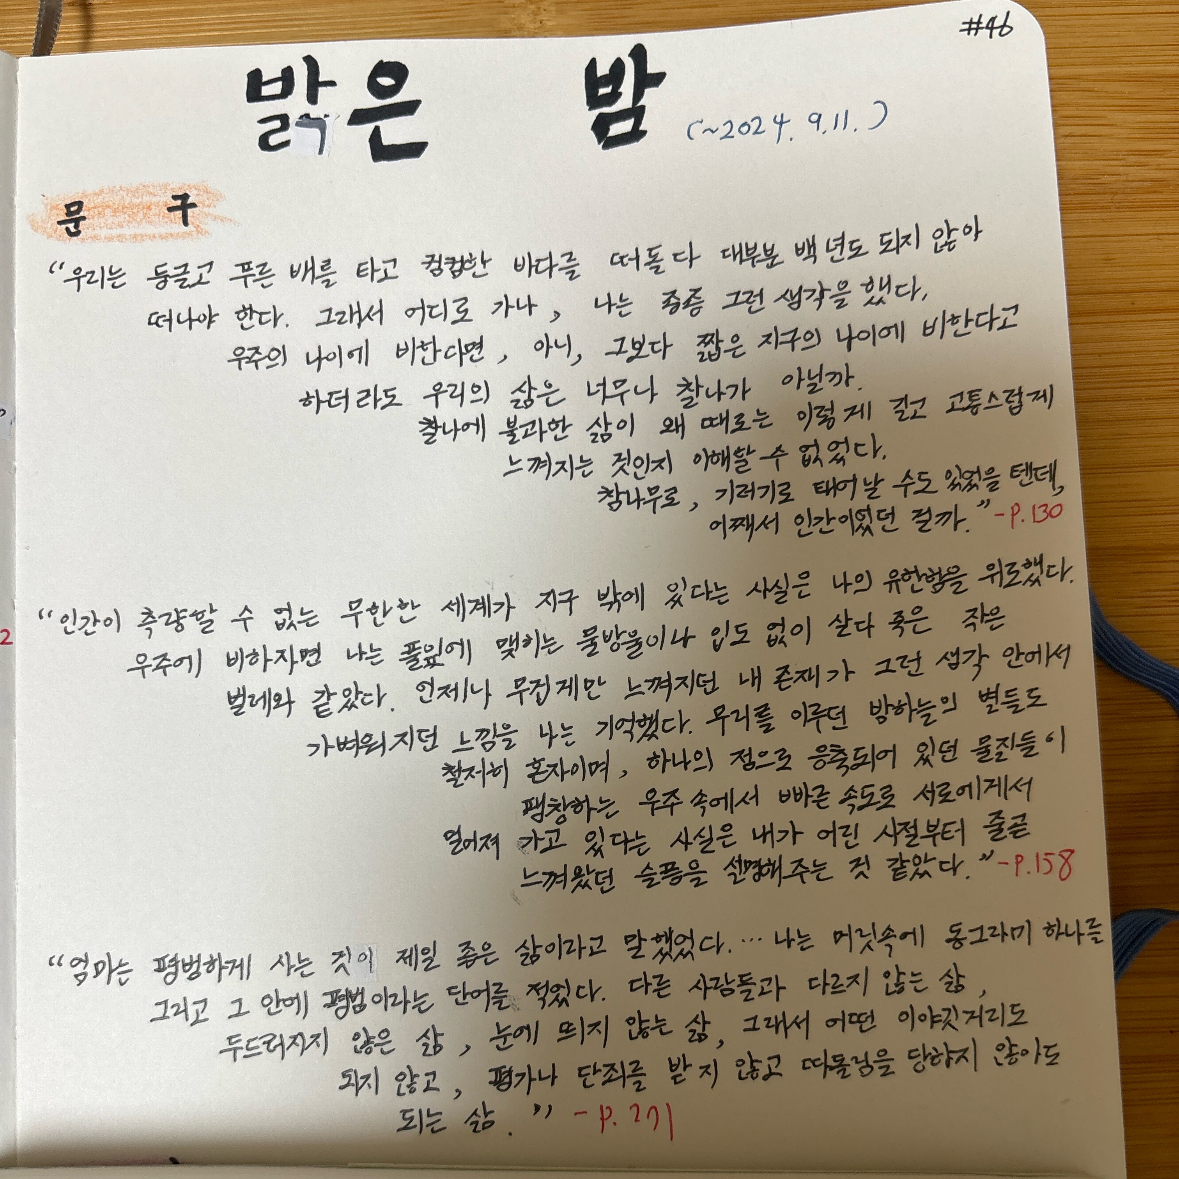 #46
밝은 밤 (~2024. 9.11.)
문 구
“우리는 둥글고 푸른 배를 타고 컴컴한 바다를 떠돌다 대부분 백 년도 되지 않아
떠나야 한다. 그래서 어디로 가나, 나는 종종 그런 생각을 했다.
우주의 나이에 비한다면, 아니, 그보다 짧은 지구의 나이에 비한다고
하더라도 우리의 삶은 너무나 찰나가 아닐까.
찰나에 불과한 삶이 왜 때로는 이렇게 길고 고통스럽게
느껴지는 것인지 이해할 수 없었다.
참나무로, 기러기로 태어날 수도 있었을 텐데,
어째서 인간이었던 걸까.” -P.130
“인간이 측량할 수 없는 무한한 세계가 지구 밖에 있다는 사실은 나의 유한함을 위로했다.
우주에 비하자면 나는 풀잎에 맺히는 물방울이나 입도 없이 살다 죽은 작은
벌레와 같았다. 언제나 무겁게만 느껴지던 내 존재가 그런 생각 안에서
가벼워지던 느낌을 나는 기억했다. 무리를 이루던 밤하늘의 별들도
철저히 혼자이며, 하나의 점으로 응축되어 있던 물질들이
팽창하는 우주 속에서 빠른 속도로 서로에게서
멀어져 가고 있다는 사실은 내가 어린 시절부터 줄곧
느껴왔던 슬픔을 설명해주는 것 같았다.” -P.158
“엄마는 평범하게 사는 것이 제일 좋은 삶이라고 말했었다. … 나는 머릿속에 동그라미 하나를
그리고 그 안에 평범이라는 단어를 적었다. 다른 사람들과 다르지 않는 삶,
두드러지지 않은 삶, 눈에 띄지 않는 삶, 그래서 어떤 이야깃거리도
되지 않고, 평가나 단죄를 받지 않고 따돌림을 당하지 않아도
되는 삶.” -P.271
2